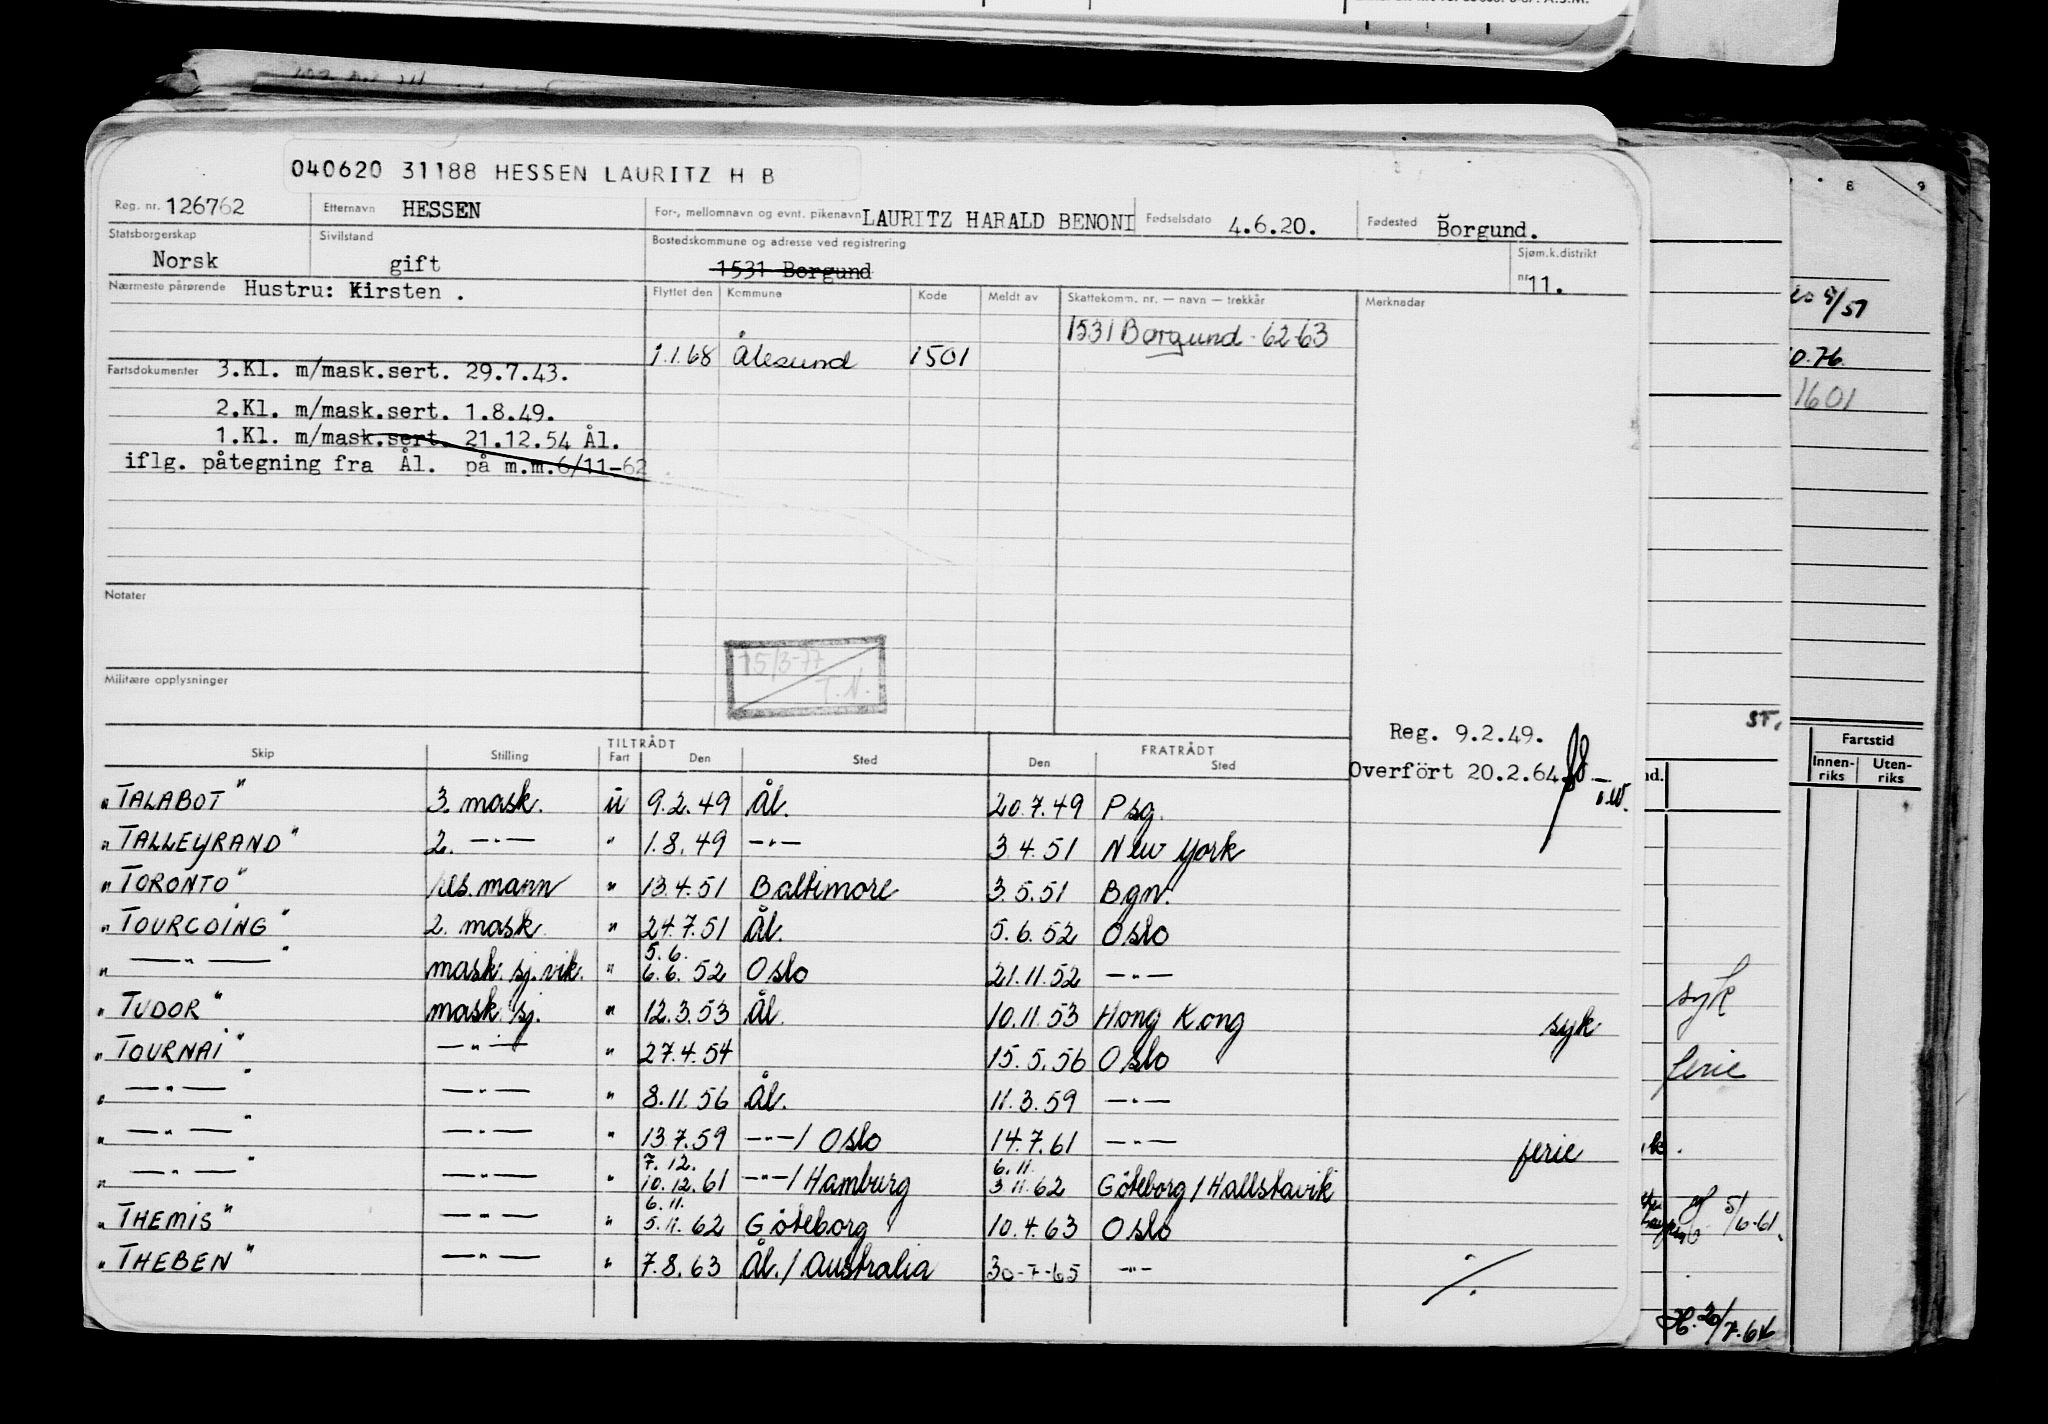 040620 31188 HESSEN LAURITZ H B
Reg. nr. 126762 Etternavn HESSEN For-, mellomnavn og evnt. pikenavn LAURITZ HARALD BENONI Fødselsdato 4.6.20. Fødested Borgund.
Statsborgerskap Norsk Sivilstand gift Bostedskommune og adresse ved registrering 1531 Borgund Sjøm.k.distrikt nr 11.
Nærmeste pårørende Hustru: Kirsten .
Flyttet den Kommune Kode Meldt av Skattekomm. nr. — navn — trekkår Merknader
1531 Borgund - 62-63
1.1.68 Ålesund 1501
Fartsdokumenter 3.Kl. m/mask.sert. 29.7.43.
2.Kl. m/mask.sert. 1.8.49.
1.Kl. m/mask.sert. 21.12.54 Ål.
iflg. påtegning fra Ål. på m.m.6/11-62
Notater
15/3-77
T.N.
Militære opplysninger
Reg. 9.2.49.
Overfört 20.2.64
Skip Stilling TILTRÅDT Fart Den Sted FRATRÅDT Den Sted
"TALABOT" 3. mask. u 9.2.49 Ål. 20.7.49 Psg.
"TALLEYRAND" 2. —"— " 1.8.49 —"— 3.4.51 New York
"TORONTO" res. mann " 13.4.51 Baltimore 3.5.51 Bgn.
"TOURCOING" 2. mask. " 24.7.51 Ål. 5.6.52 Oslo
" —"— " mask. sj. vik. " 5.6. 6.6.52 Oslo 21.11.52 —"—
"TUDOR" mask sj. " 12.3.53 Ål. 10.11.53 Hong Kong syk
"TOURNAI" —"— " 27.4.54 15.5.56 Oslo
" —"— " —"— " 8.11.56 Ål. 11.3.59 —"—
" —"— " —"— " 13.7.59 —"— / Oslo 14.7.61 —"— ferie
" —"— " —"— " 7.12. 10.12.61 —"— / Hamburg 6.11. 3.11.62 Göteborg / Hallstavik
"THEMIS" —"— " 6.11. 5.11.62 Göteborg 10.4.63 Oslo
"THEBEN" —"— " 7.8.63 Ål. / Australia 30-7-65 —"— ./.
8 9
5/57
0.76.
1601
ST.
Fartstid
Innen-riks Uten-riks
syk
ferie
5/6-61
20/7.66